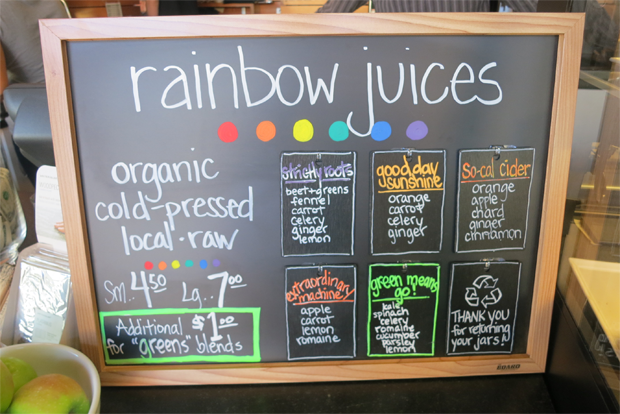 rainbow juices
organic
cold-pressed
local·raw
Sm..4.50 Lg..7.00
Additional $1.00
for "greens" blends
strictly roots
beet+greens
fennel
carrot
celery
ginger
lemon
good day
sunshine
orange
carrot
celery
ginger
So-cal cider
orange
apple
chard
ginger
cinnamon
extraordinary
machine
apple
carrot
lemon
romaine
green means
go!
kale
spinach
celery
romaine
cucumber
parsley
lemon
THANK YOU
for returning
your jars!